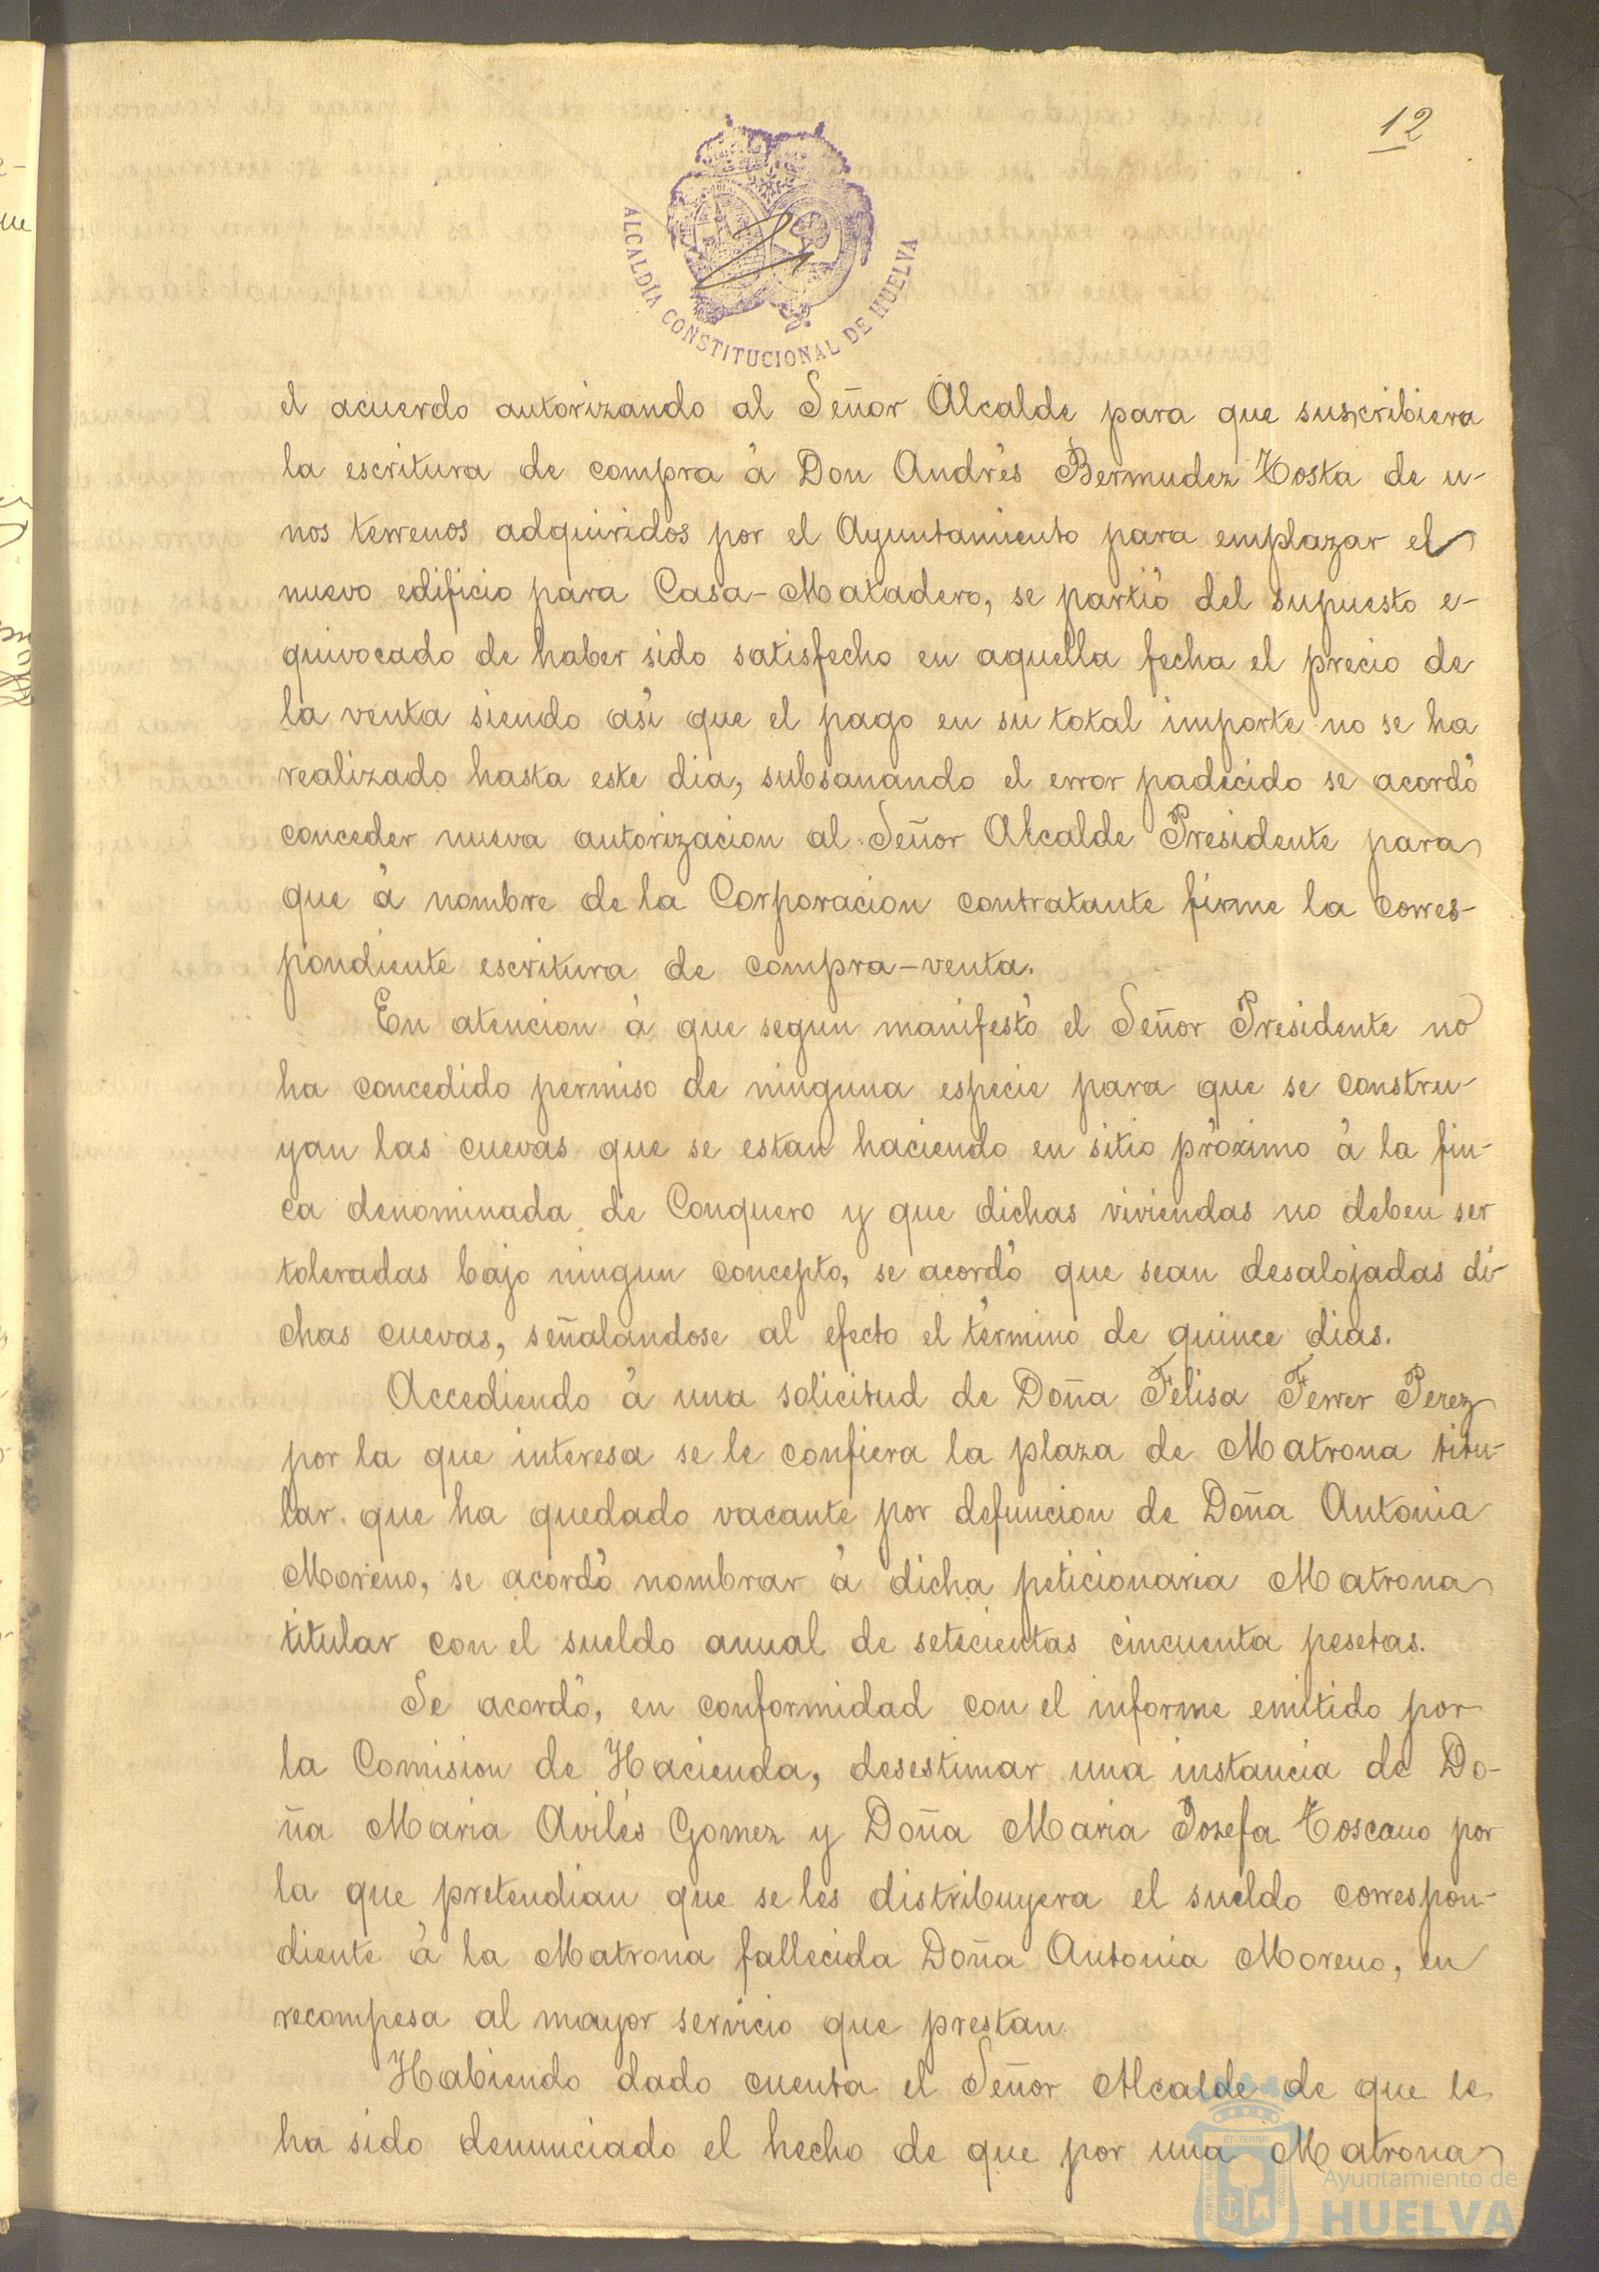 12
ALCALDÍA CONSTITUCIONAL DE HUELVA
el acuerdo autorizando al Señor Alcalde para que suscribiera
la escritura de compra á Don Andrés Bermudez Hosta de u-
nos terrenos adquiridos por el Ayuntamiento para emplazar el
nuevo edificio para Casa-Matadero, se partió del supuesto e-
quivocado de haber sido satisfecho en aquella fecha el precio de
la venta siendo así que el pago en su total importe no se ha
realizado hasta este dia, subsanando el error padecido se acordó
conceder nueva autorizacion al Señor Alcalde Presidente para
que á nombre de la Corporacion contratante firme la corres-
pondiente escritura de compra-venta.
En atencion á que segun manifestó el Señor Presidente no
ha concedido permiso de ninguna especie para que se constru-
yan las cuevas que se estan haciendo en sitio próximo á la fin-
ca denominada de Conquero y que dichas viviendas no deben ser
toleradas bajo ningun concepto, se acordó que sean desalojadas di-
chas cuevas, señalandose al efecto el término de quince dias.
Accediendo á una solicitud de Doña Felisa Ferrer Perez
por la que interesa se le confiera la plaza de Matrona titu-
lar que ha quedado vacante por defuncion de Doña Antonia
Moreno, se acordó nombrar á dicha peticionaria Matrona
titular con el sueldo anual de setecientas cincuenta pesetas.
Se acordó, en conformidad con el informe emitido por
la Comision de Hacienda, desestimar una instancia de Do-
ña Maria Avilés Gomez y Doña Maria Josefa Toscano por
la que pretendian que se les distribuyera el sueldo correspon-
diente á la Matrona fallecida Doña Antonia Moreno, en
recompesa al mayor servicio que prestan.
Habiendo dado cuenta el Señor Alcalde de que le
ha sido denunciado el hecho de que por una Matrona
Ayuntamiento de
HUELVA